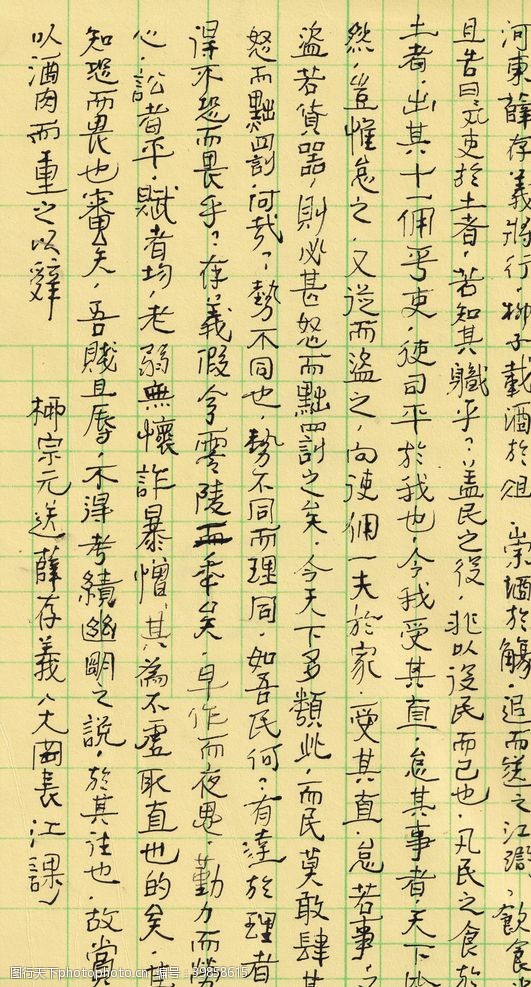 河東薛存義將行，柳子載酒於俎，崇酒於觴，追而送之江滸，飲食
且告曰：凡吏於土者，若知其職乎？蓋民之役，非以役民而已也。凡民之食於
土者，出其十一傭乎吏，使司平於我也。今我受其直，怠其事者，天下
然。豈惟怠之，又從而盜之。向使傭一夫於家，受其直，怠若事，
盜若貨器，則必甚怒而黜罰之矣。今天下多類此，而民莫敢肆其
怒而黜罰，何哉？勢不同也。勢不同而理同，如吾民何？有達於理者，
得不恐而畏乎？存義假令零陵 矣，早作而夜思，勤力而勞
心，訟者平，賦者均，老弱無懷詐暴憎，其為不虛取直也的矣，
知恐而畏也審矣。吾賤且辱，不得考績幽明之說，於其往也，故賞
以酒肉而重之以辭 柳宗元送薛存義 江課
图行天下photophoto.cn 编号：39858615